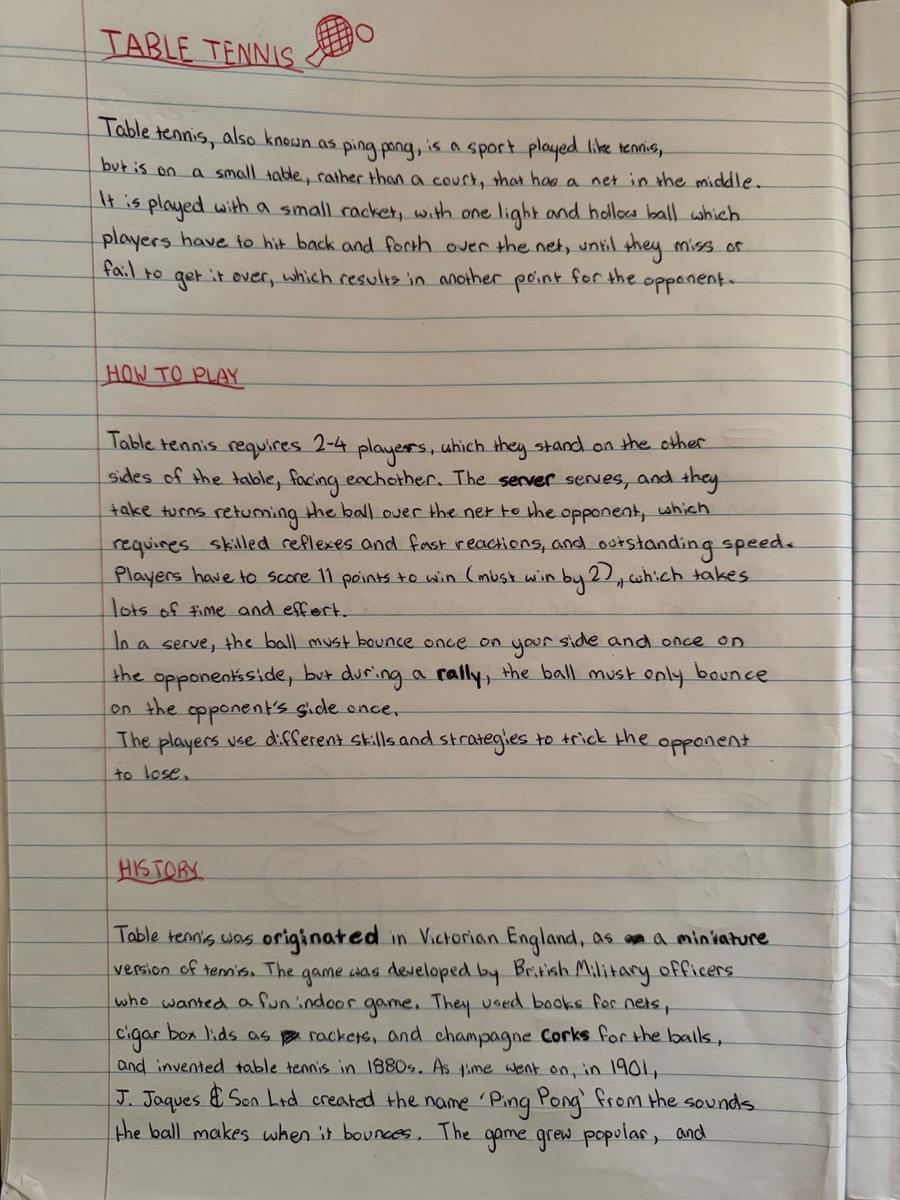 TABLE TENNIS
Table tennis, also known as ping pong, is a sport played like tennis,
but is on a small table, rather than a court, that has a net in the middle.
It is played with a small racket, with one light and hollow ball which
players have to hit back and forth over the net, until they miss or
fail to get it over, which results in another point for the opponent.
HOW TO PLAY
Table tennis requires 2-4 players, which they stand on the other
sides of the table, facing eachother. The server serves, and they
take turns returning the ball over the net to the opponent, which
requires skilled reflexes and fast reactions, and outstanding speed.
Players have to score 11 points to win (must win by 2), which takes
lots of time and effort.
In a serve, the ball must bounce once on your side and once on
the opponent's side, but during a rally, the ball must only bounce
on the opponent's side once.
The players use different skills and strategies to trick the opponent
to lose.
HISTORY
Table tennis was originated in Victorian England, as a miniature
version of tennis. The game was developed by British Military officers
who wanted a fun indoor game. They used books for nets,
cigar box lids as rackets, and champagne corks for the balls,
and invented table tennis in 1880s. As time went on, in 1901,
J. Jaques & Son Ltd created the name 'Ping Pong' from the sounds
the ball makes when it bounces. The game grew popular, and